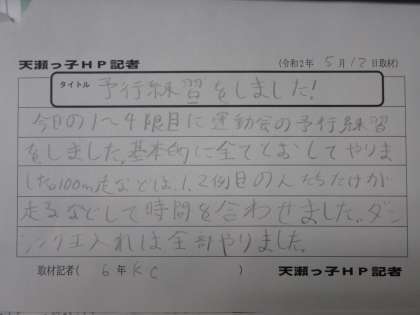 天瀬っ子HP記者 (令和2年 5月12日取材)
タイトル 予行練習をしました!
今日の1〜4限目に運動会の予行練習
をしました。基本的に全てとおしてやりま
した。100m走などは、1、2例目の人たちだけが
走るなどして時間を合わせました。ダン
シング玉入れは全部やりました。
取材記者( 6年KC ) 天瀬っ子HP記者